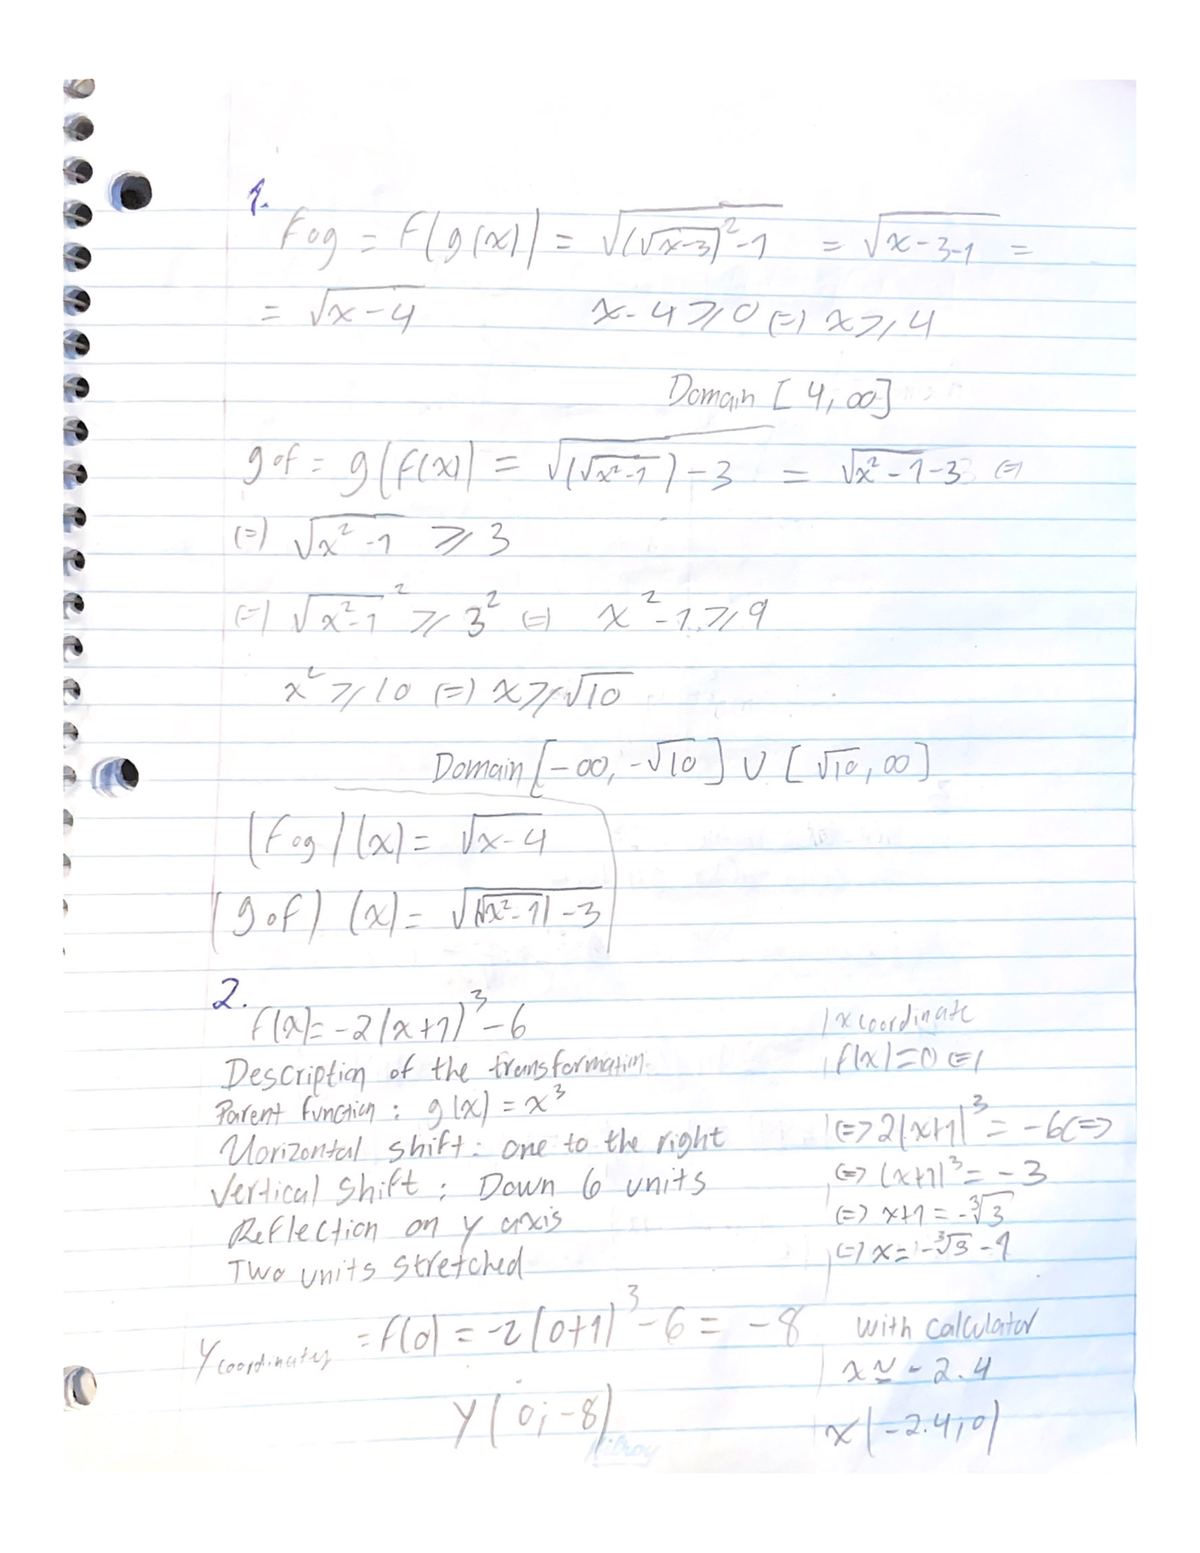 1.
Fog = f(g(x)) = √((√x-3)²-1) = √x-3-1 =
= √x-4    x-4 ⩾ 0 (=) x ⩾ 4
Domain [4, ∞]
gof = g(f(x)) = √((√x²-1)-3) = √x²-1-3 (=)
(=) √x²-1 ⩾ 3
(=) √x²-1² ⩾ 3² (=) x²-1 ⩾ 9
x² ⩾ 10 (=) x ⩾ √10
Domain [-∞, -√10] ∪ [√10, ∞]
(Fog)(x) = √x-4
(gof)(x) = √((√x²-1)-3)
2.
f(x) = -2(x+1)³-6
Description of the transformation.
Parent function : g(x) = x³
Horizontal shift : one to the right
Vertical Shift : Down 6 units
Reflection on y axis
Two units stretched
x coordinate
f(x)=0 (=)
(=> 2(x+1)³ = -6 (=>
(=> (x+1)³ = -3
(=) x+1 = -∛3
(=) x = -∛3 -1
y coordinates = f(0) = -2(0+1)³-6 = -8
y(0;-8)
with calculator
x ≃ -2.4
x(-2.4;0)